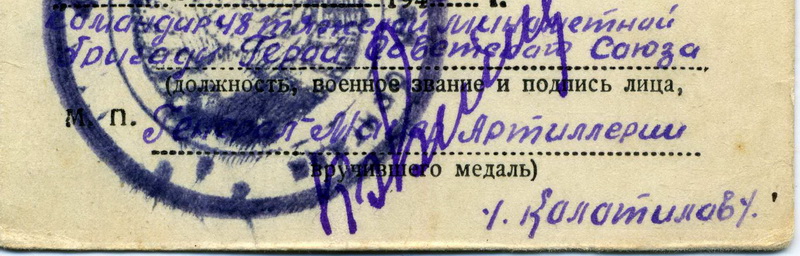 194 г.
Командир 48 тяжелой минометной
бригады Герой Советского Союза
(должность, военное звание и подпись лица,
М. П. Генерал-Майор Артиллерии
вручившего медаль)
/. Калатилов/.